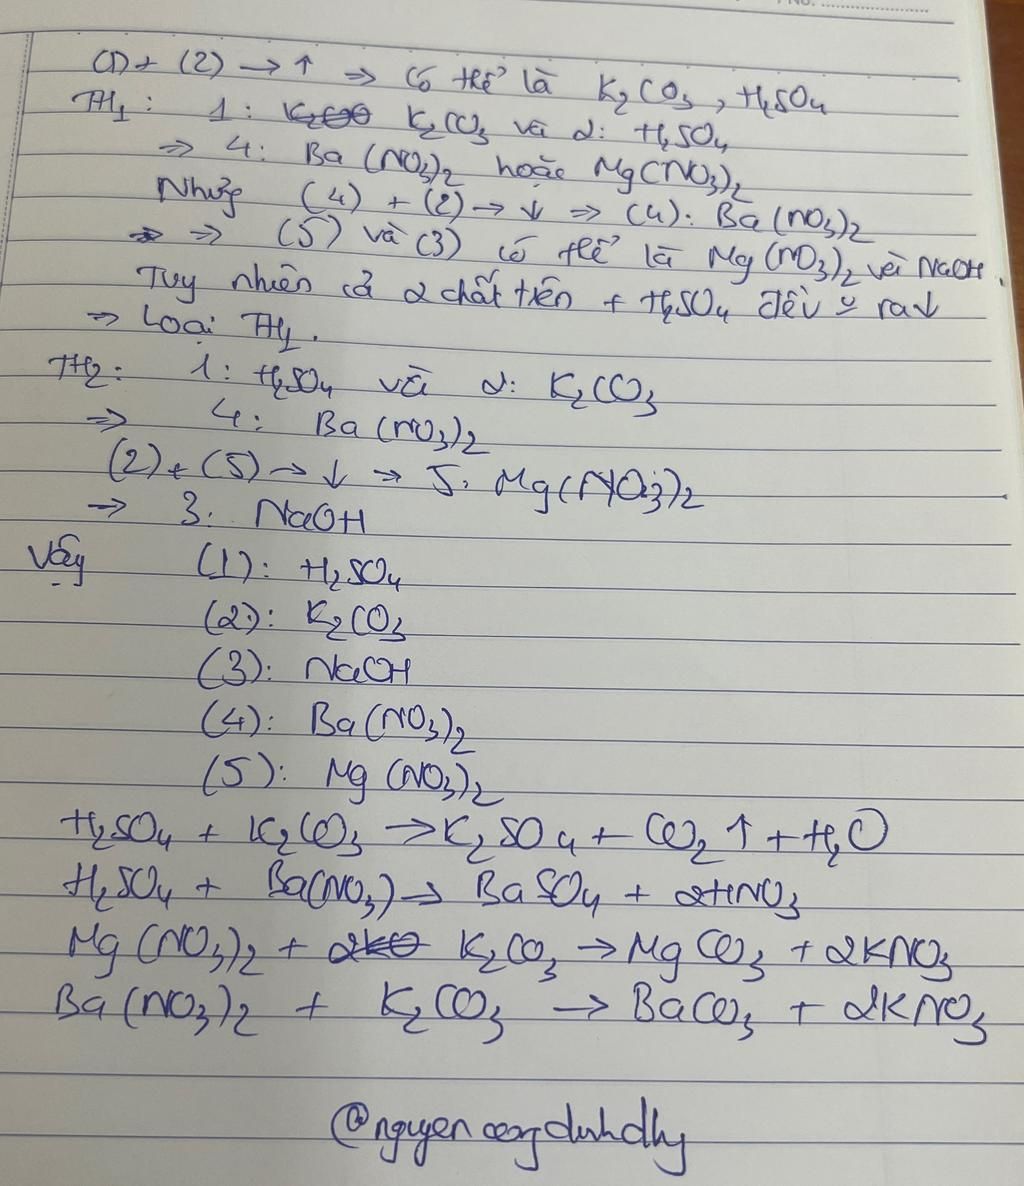 (1) + (2) → ↑ ⇒ Có thể là K₂CO₃, H₂SO₄
TH₁: 1: K₂CO₃ và 2: H₂SO₄
⇒ 4: Ba(NO₃)₂ hoặc Mg(NO₃)₂
Nhưng (4) + (2) → ↓ ⇒ (4): Ba(NO₃)₂
⇒ (5) và (3) có thể là Mg(NO₃)₂ và NaOH.
Tuy nhiên cả 2 chất trên + H₂SO₄ đều ra ↓
⇒ Loại TH₁.
TH₂: 1: H₂SO₄ và 2: K₂CO₃
⇒ 4: Ba(NO₃)₂
(2) + (5) → ↓ → 5: Mg(NO₃)₂
→ 3: NaOH
Vậy (1): H₂SO₄
(2): K₂CO₃
(3): NaOH
(4): Ba(NO₃)₂
(5): Mg(NO₃)₂
H₂SO₄ + K₂CO₃ → K₂SO₄ + CO₂ ↑ + H₂O
H₂SO₄ + Ba(NO₃) → BaSO₄ + 2HNO₃
Mg(NO₃)₂ + K₂CO₃ → MgCO₃ + 2KNO₃
Ba(NO₃)₂ + K₂CO₃ → BaCO₃ + 2KNO₃